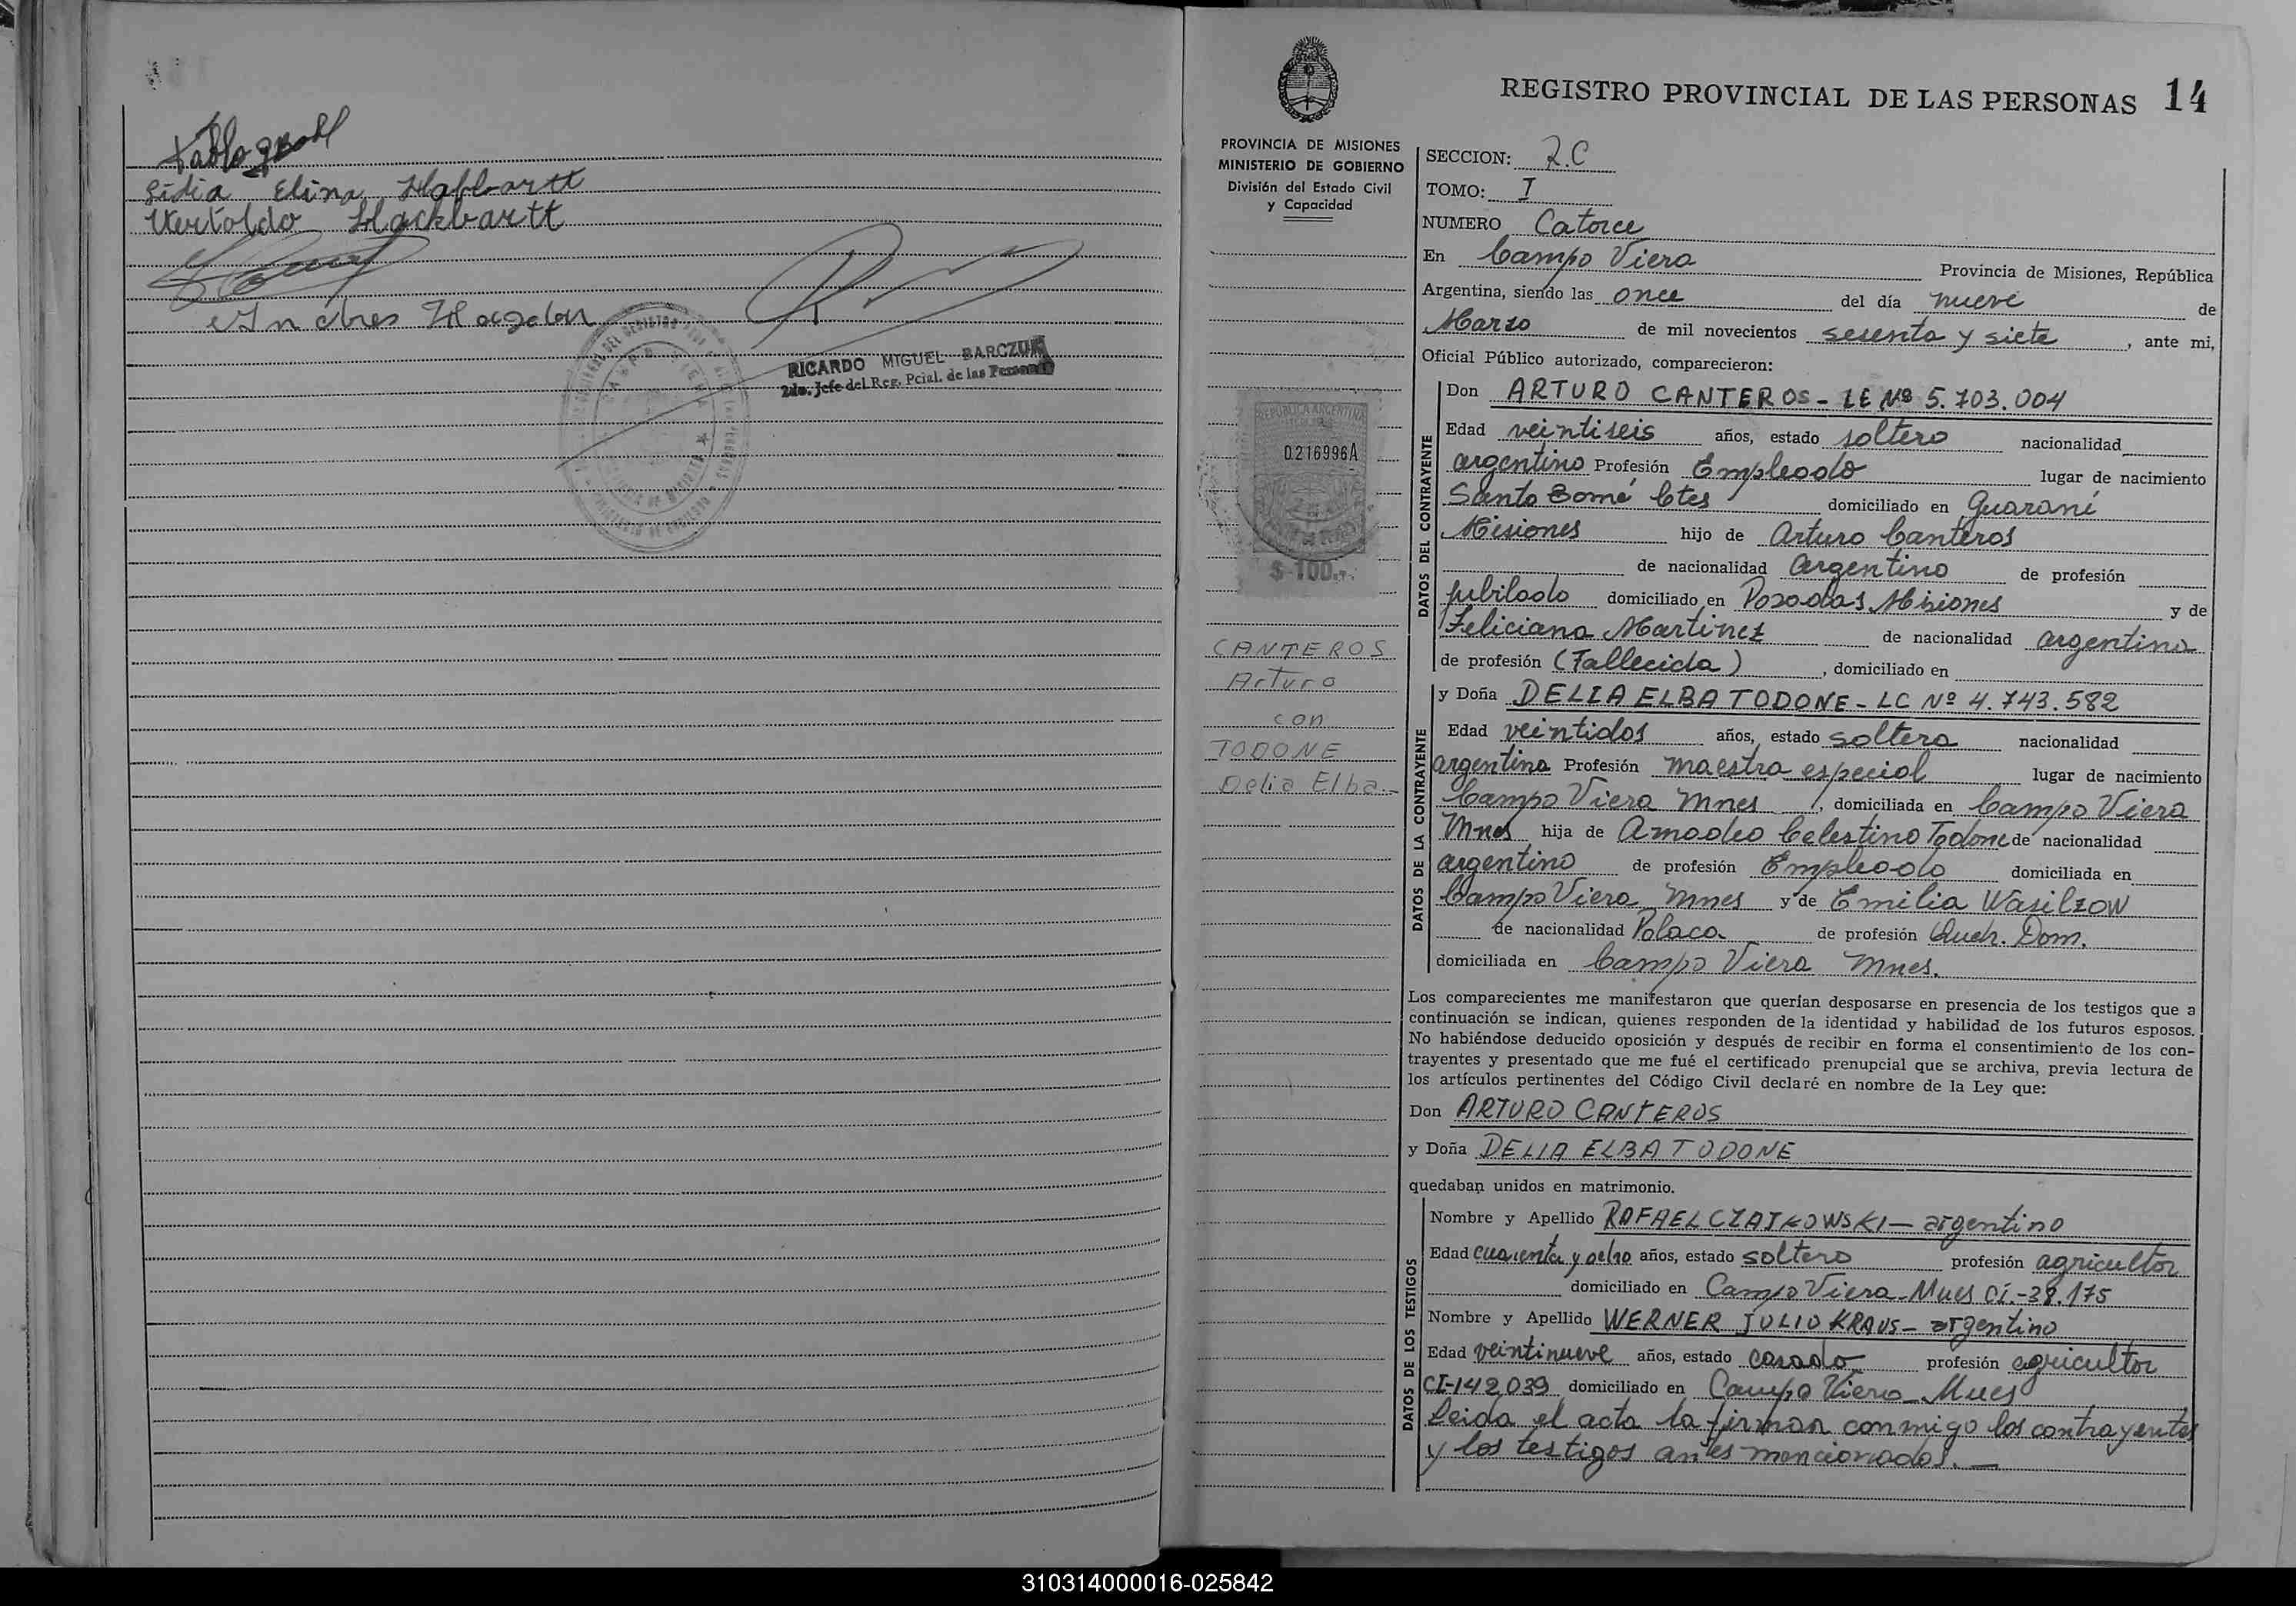 Pablo
Lidia Elina Hakbartt
Hackbartt
RICARDO MIGUEL BARCZUK
2do. Jefe del Reg. Pcial. de las Personas
REGISTRO PROVINCIAL DE LAS PERSONAS 14
PROVINCIA DE MISIONES
MINISTERIO DE GOBIERNO
División del Estado Civil
y Capacidad
REPUBLICA ARGENTINA
0216996A
$ 100.-
CANTEROS
Arturo
con
TODONE
Delia Elba.-
SECCION: R.C
TOMO: I
NUMERO Catorce
En Campo Viera Provincia de Misiones, República
Argentina, siendo las once del día nueve de
Marzo de mil novecientos sesenta y siete, ante mi,
Oficial Público autorizado, comparecieron:
DATOS DEL CONTRAYENTE
Don ARTURO CANTEROS - LE Nº 5.703.004
Edad veintiseis años, estado soltero nacionalidad
argentino Profesión Empleado lugar de nacimiento
Santo Tomé Ctes domiciliado en Guaraní
Misiones hijo de Arturo Canteros
de nacionalidad Argentino de profesión
jubilado domiciliado en Posadas Misiones y de
Feliciana Martinez de nacionalidad argentina
de profesión (Fallecida), domiciliado en
DATOS DE LA CONTRAYENTE
y Doña DELIA ELBA TODONE - LC Nº 4.743.582
Edad veintidos años, estado soltera nacionalidad
argentina Profesión maestra especial lugar de nacimiento
Campo Viera Mnes, domiciliada en Campo Viera
Mnes hija de Amadeo Celestino Todone de nacionalidad
argentino de profesión Empleado domiciliada en
Campo Viera Mnes y de Emilia Wasilzow
de nacionalidad Polaca de profesión Queh. Dom.
domiciliada en Campo Viera Mnes.
Los comparecientes me manifestaron que querían desposarse en presencia de los testigos que a
continuación se indican, quienes responden de la identidad y habilidad de los futuros esposos.
No habiéndose deducido oposición y después de recibir en forma el consentimiento de los con-
trayentes y presentado que me fué el certificado prenupcial que se archiva, previa lectura de
los artículos pertinentes del Código Civil declaré en nombre de la Ley que:
Don ARTURO CANTEROS
y Doña DELIA ELBA TODONE
quedaban unidos en matrimonio.
DATOS DE LOS TESTIGOS
Nombre y Apellido RAFAEL CZAJKOWSKI - argentino
Edad cuarenta y ocho años, estado soltero profesión agricultor
domiciliado en Campo Viera - Mnes CI.-38.175
Nombre y Apellido WERNER JULIO KRAUS - argentino
Edad veintinueve años, estado casado profesión agricultor
CI-142.039 domiciliado en Campo Viera - Mnes
Leida el acta la firman conmigo los contrayentes
y los testigos antes mencionados. —
310314000016-025842